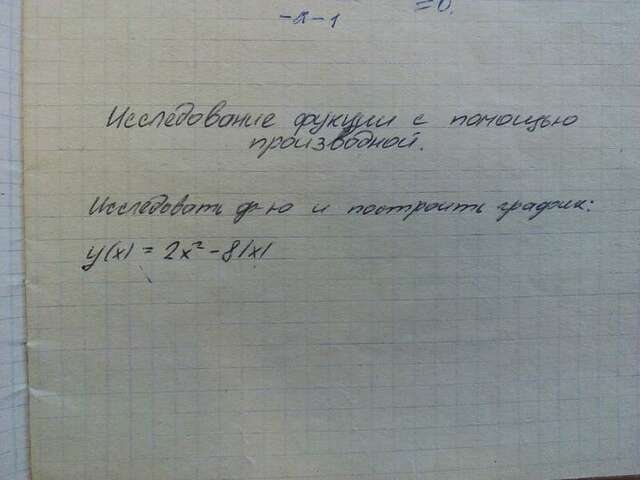 = 0.
-2-1
Исследование фукции с помощью
производной.
Исследовать ф-ю и построить график:
y(x) = 2x² - 8|x|